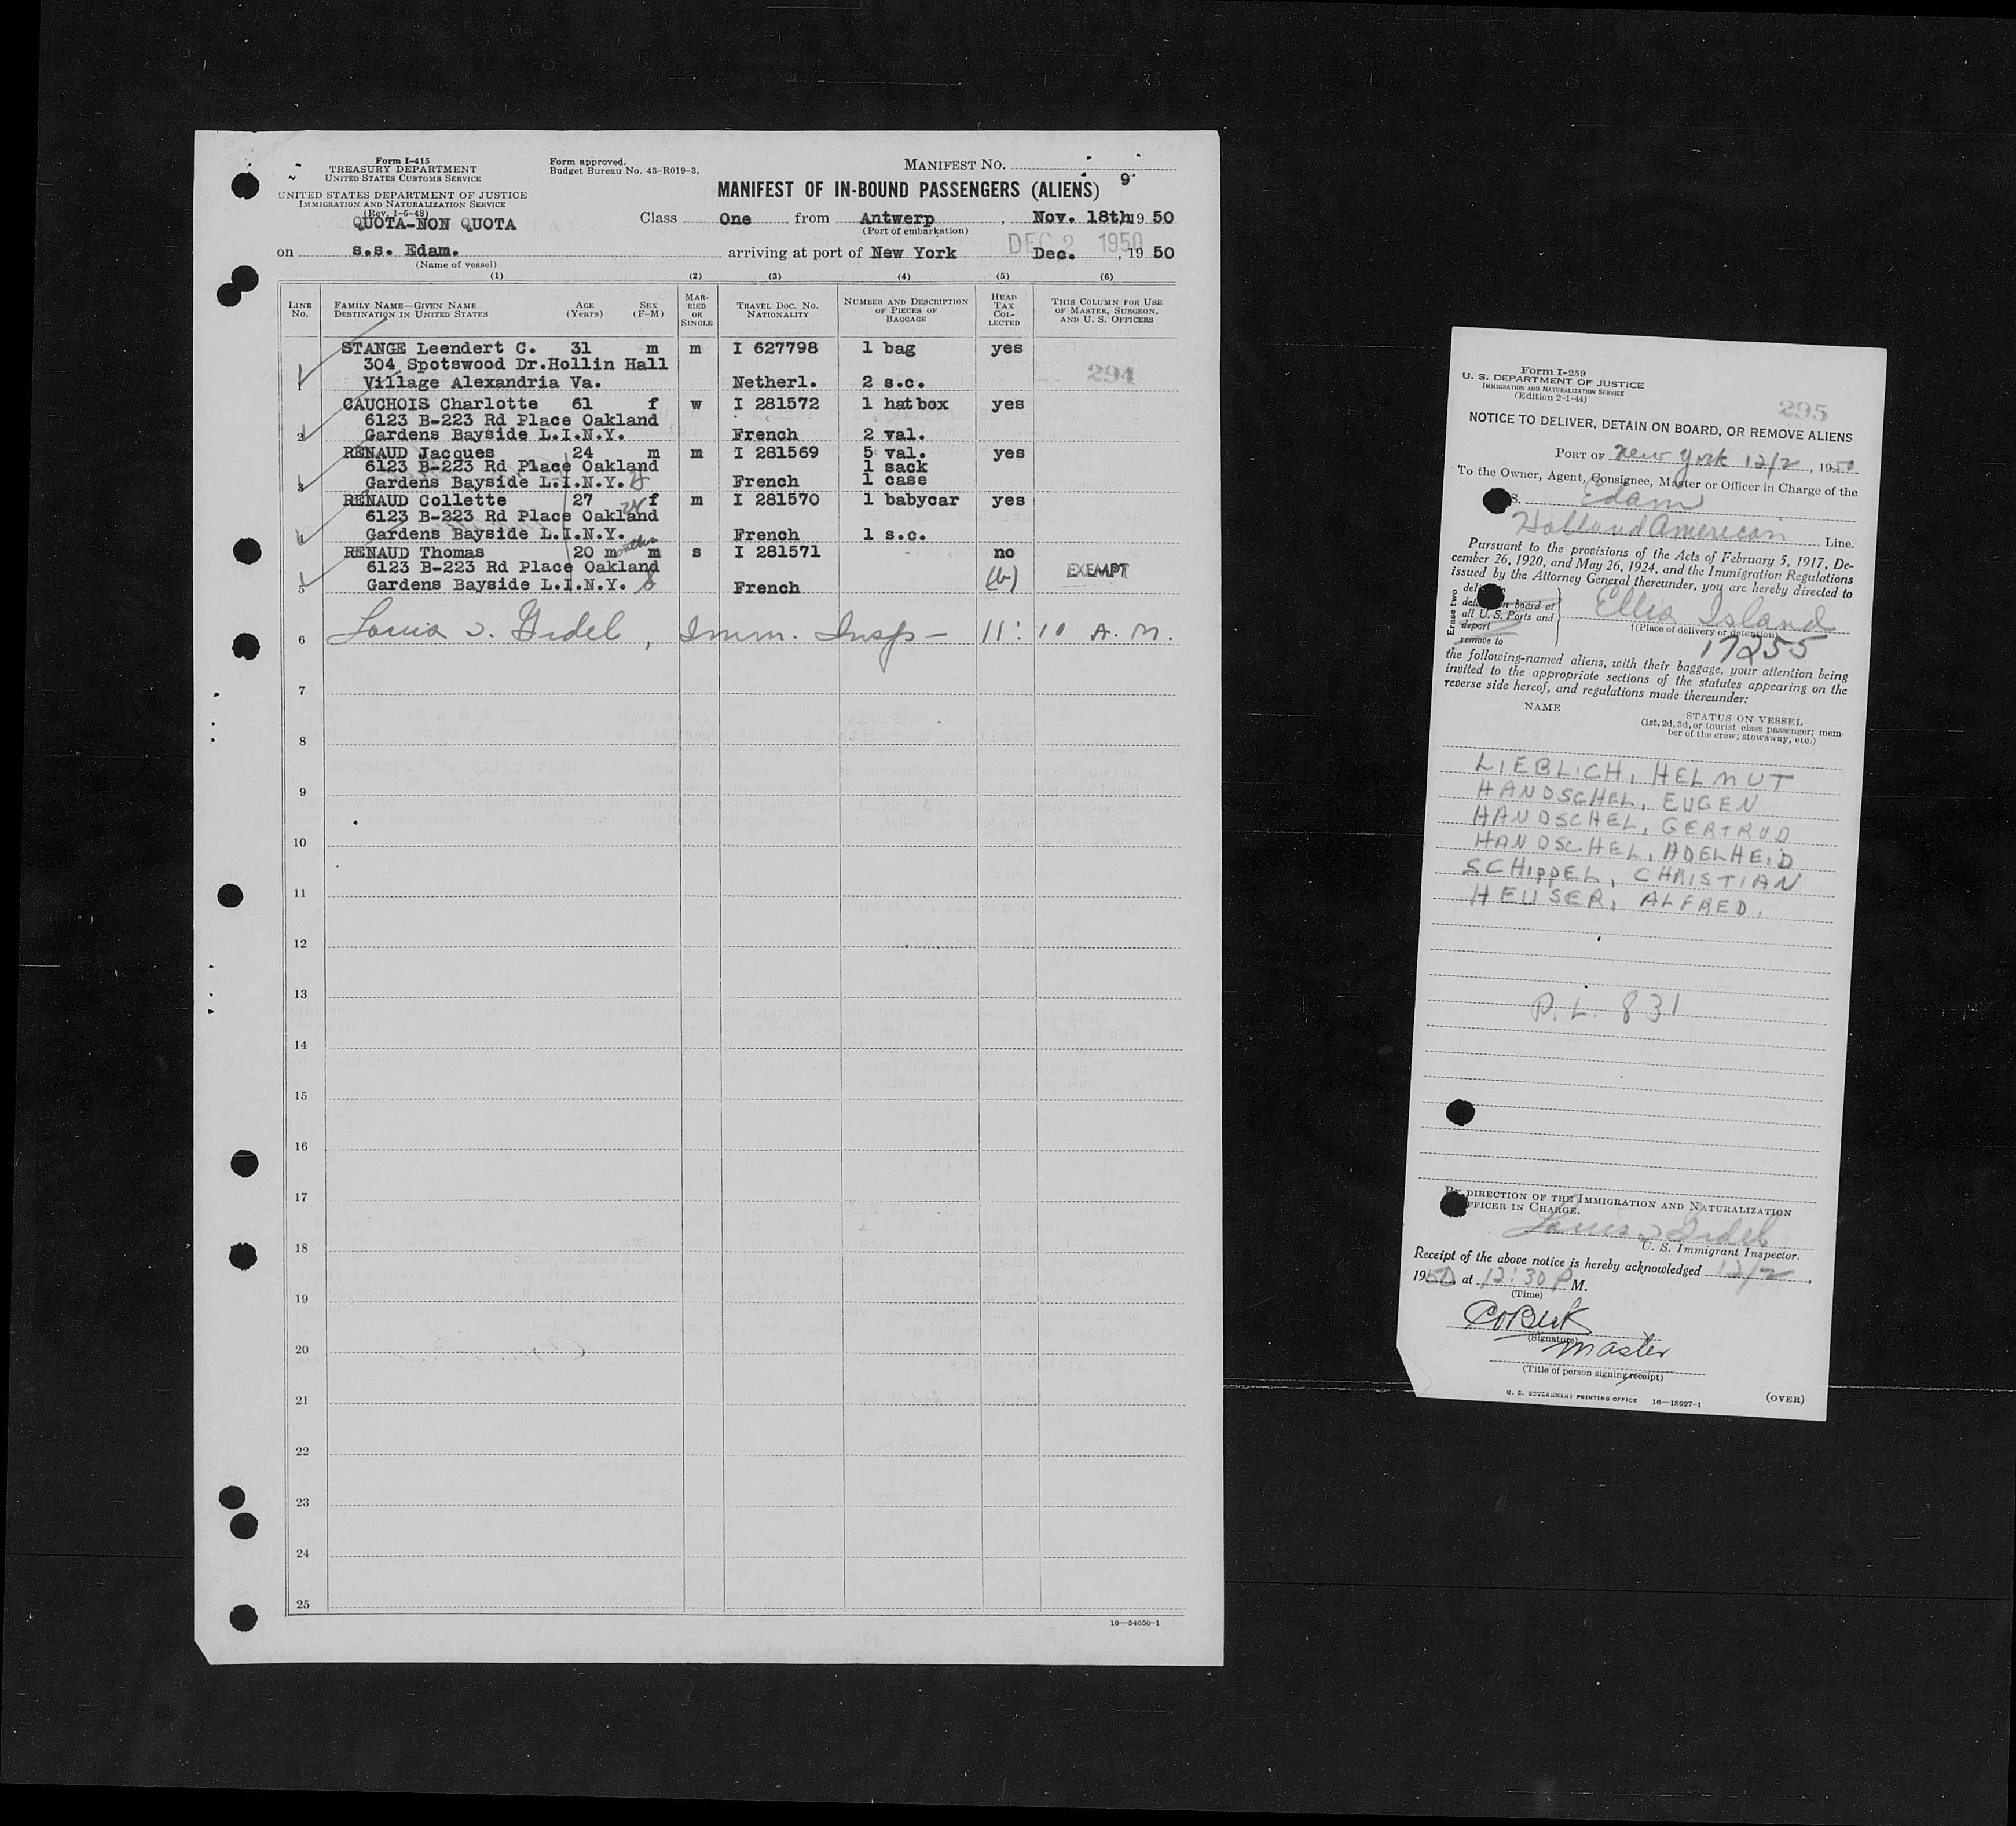 Form I-415
TREASURY DEPARTMENT
UNITED STATES CUSTOMS SERVICE
UNITED STATES DEPARTMENT OF JUSTICE
IMMIGRATION AND NATURALIZATION SERVICE
(Rev. 1-6-48)
QUOTA-NON QUOTA
Form approved.
Budget Bureau No. 43-R019-3.
MANIFEST NO.
9
MANIFEST OF IN-BOUND PASSENGERS (ALIENS)
Class One from Antwerp, Nov. 18th, 19 50
(Port of embarkation)
DEC 2 1950
on s.s. Edam. arriving at port of New York Dec. , 19 50
(Name of vessel)
(1) (2) (3) (4) (5) (6)
LINE No. FAMILY NAME—GIVEN NAME DESTINATION IN UNITED STATES AGE (Years) SEX (F-M) MARRIED OR SINGLE TRAVEL DOC. NO. NATIONALITY NUMBER AND DESCRIPTION OF PIECES OF BAGGAGE HEAD TAX COLLECTED THIS COLUMN FOR USE OF MASTER, SURGEON, AND U. S. OFFICERS
STANGE Leendert C. 31 m m I 627798 1 bag yes
304 Spotswood Dr.Hollin Hall
1 Village Alexandria Va. Netherl. 2 s.c. 294
CAUCHOIS Charlotte 61 f w I 281572 1 hatbox yes
6123 B-223 Rd Place Oakland
2 Gardens Bayside L.I.N.Y. French 2 val.
RENAUD Jacques 24 m m I 281569 5 val. yes
6123 B-223 Rd Place Oakland 1 sack
3 Gardens Bayside L.I.N.Y. French 1 case
RENAUD Collette 27 f m I 281570 1 babycar yes
6123 B-223 Rd Place Oakland
4 Gardens Bayside L.I.N.Y. French 1 s.c.
RENAUD Thomas 20 months m s I 281571 no
6123 B-223 Rd Place Oakland (b) EXEMPT
5 Gardens Bayside L.I.N.Y. French
6 Louis J. Gidel, Imm. Insp - 11:10 A.M.
7
8
9
10
11
12
13
14
15
16
17
18
19
20
21
22
23
24
25
16—54650-1
Form I-259
U. S. DEPARTMENT OF JUSTICE
IMMIGRATION AND NATURALIZATION SERVICE
(Edition 2-1-44)
295
NOTICE TO DELIVER, DETAIN ON BOARD, OR REMOVE ALIENS
PORT OF New York 12/2, 1950
To the Owner, Agent, Consignee, Master or Officer in Charge of the
S. Edam
Holland American Line.
Pursuant to the provisions of the Acts of February 5, 1917, De-
cember 26, 1920, and May 26, 1924, and the Immigration Regulations
issued by the Attorney General thereunder, you are hereby directed to
Erase two
on board at
all U. S. Ports and
deport
remove to
Ellis Island
(Place of delivery or detention)
17255
the following-named aliens, with their baggage, your attention being
invited to the appropriate sections of the statutes appearing on the
reverse side hereof, and regulations made thereunder:
NAME
STATUS ON VESSEL
(1st, 2d, 3d, or tourist class passenger; mem-
ber of the crew; stowaway, etc.)
LIEBLICH, HELMUT
HANDSCHEL, EUGEN
HANDSCHEL, GERTRUD
HANDSCHEL, ADELHEID
SCHIPPEL, CHRISTIAN
HEUSER, ALFRED.
P.L. 831
BY DIRECTION OF THE IMMIGRATION AND NATURALIZATION
OFFICER IN CHARGE.
Louis J. Gidel
U. S. Immigrant Inspector.
Receipt of the above notice is hereby acknowledged 12/2,
1950, at 12:30 P M.
(Time)
(Signature)
Master
(Title of person signing receipt)
U. S. GOVERNMENT PRINTING OFFICE 16—18927-1
(OVER)